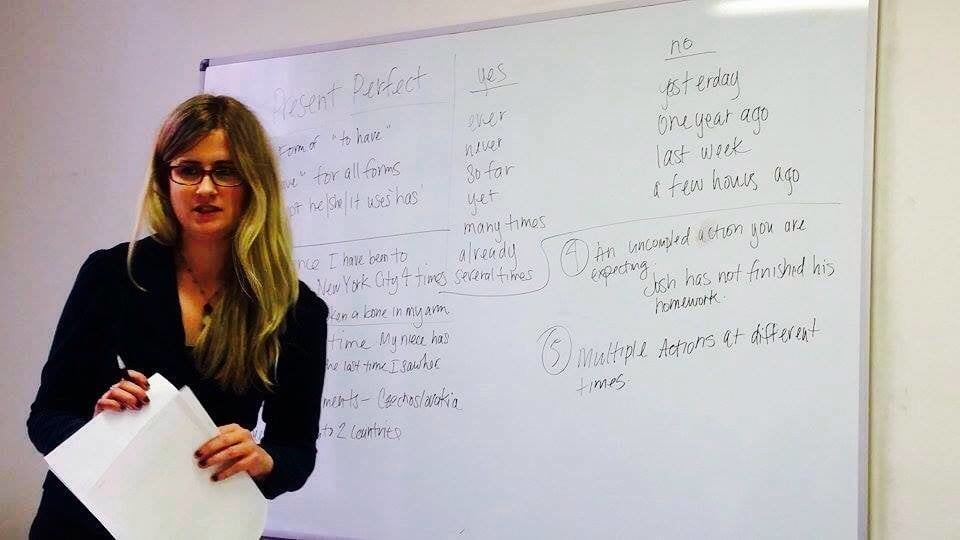 Present Perfect
Form of "to have"
"ve" for all forms
pt he/she/it uses 'has'
nce I have been to
New York City 4 times
ken a bone in my arm
time My niece has
he last time I saw her
ments - Czechoslovakia
to 2 countries
yes
ever
never
so far
yet
many times
already
several times
no
yesterday
one year ago
last week
a few hours ago
4 An uncompled action you are
expecting.
Josh has not finished his
homework.
5 Multiple Actions at different
times.